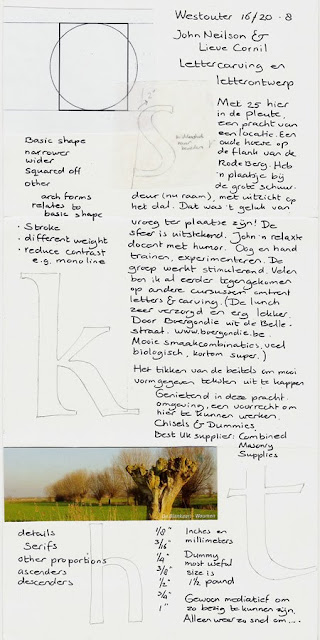 Westouter 16/20-8
John Neilson &
Lieve Cornil
Lettercarving en
letterontwerp
Met 25 hier
in de pleute,
een pracht van
een locatie. Een
oude hoeve op
de flank van de
Rode Berg. Heb
'n plaatsje bij
de grote schuur.
deur (nu raam), met uitzicht op
het dal. Dat was 't geluk van
vroeg ter plaatse zijn! De
sfeer is uitstekend. John 'n relaxte
docent met humor. Oog en hand
trainen, experimenteren. De
groep werkt stimulerend. Velen
ben ik al eerder tegengekomen
op andere cursussen omtrent
letters & carving. (De lunch
zeer verzorgd en erg lekker.
Door Boergondie uit de Belle-
straat. www.boergondie.be.
Mooie smaakcombinaties, veel
biologisch, kortom super.)
Het tikken van de beitels om mooi
vormgegeven teksten uit te kappen
Genietend in deze pracht
omgeving, een voorrecht om
hier te kunnen werken.
Chisels & Dummies
Best UK supplier: Combined
Masonry
Supplies
Basic shape
narrower
wider
squared off
other
arch forms
relates to
basic shape
• Stroke
• different weight
• reduce contrast
e.g. monoline
S
k
t
h
details
Serifs
other proportions
ascenders
descenders
1/8"
3/16"
1/4"
3/8"
1/2"
3/4"
1"
Inches en
millimeters
Dummy
most useful
size is
1 1/2 pound
Gewoon mediatief om
zo bezig te kunnen zijn.
Alleen weer zo snel om....